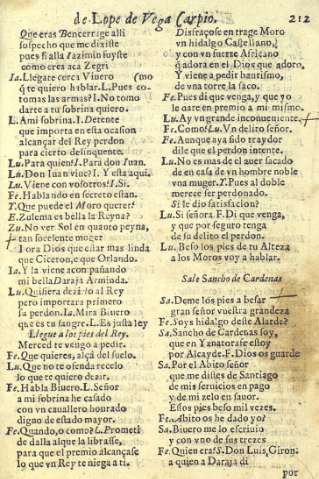 de Lope de Vega Carpio. 212
Que eras Bencerrage alli
sospecho que me dixiste
pues si alla Iazimin fuyste
como eres aca Zegri
Ia. Llegate cerca Vivero (mo
q̃ te quiero hablar. L. Pues co-
tomas las armas? I. No tomo
darte a tu sobrina quiero.
L. Ami sobrina. I. Detente
que importa en esta ocasion
alcançar del Rey perdon
para cierto delinquente.
Lu. Para quien? I. Para don Iuan.
Lu. Don Iuan vino? I. Y esta aqui.
Lu. Viene con vosotros? I. Si.
Fr. Hablando en secreto estan.
T. Que puede el Moro querer?
E. Zulema es bella la Reyna?
Zu. No ver Sol en quanto peyna,
tan socelente muger
I ora Dios que estar mas linda
que Ciceron, e que Orlando.
Ia. Y la viene acompañando
mi bella Daraja Arminda.
Lu. Quisiera dezirlo al Rey
pero importara primero
su perdon. Ia. Mira Bivero
que es tu sangre. L. Es justa ley
Llegue a los pies del Rey.
Merced te vengo a pedir.
Fe. Que quieres, alça del suelo.
Lu. Que no te ofenda recelo
lo que te quiero dezir.
Fe. Habla Biuero. L. Señor
a mi sobrina he casado
con vn cauallero honrado
digno de estado mayor.
Fe. Quando, o como? L. Prometi
de dalla al que la librasse,
para que el premio alcançasse
lo que vn Rey te niega a ti.
Disfraçose en trage Moro
vn hidalgo Castellano,
y con vn sastre Africano
q̃ adora en el Dios que adoro,
Y viene a pedir bautismo,
de vna torre la saco.
Fe. Pues di que venga, y que yo
le dare en premio a mi mismo.
Lu. Ay vn grande inconueniente.
Fe. Como? Lu. Vn delito señor.
Fe. Aunque aya sido traydor
dile que el perdon intente.
Lu. No es mas de el auer sacado
de en casa de vn hombre noble
vna muger. T. Pues al doble
merece ser perdonado.
Si le dio satisfacion?
Lu. Si señora F. Di que venga,
y que por seguro tenga
de su delito el perdon.
Lu. Beso los pies de tu Alteza
a los Moros voy a hablar.
Sale Sancho de Cardenas
Sa. Deme los pies a besar
gran señor vuestra grandeza
Fe. Soys hidalgo deste Alarde?
Sa. Sancho de Cardenas soy,
que en Yznatorafe estoy
por Alcayde. F. Dios os guarde
Sa. Por el Abito señor
que me distes de Santiago
de mis seruicios en pago
y de mi zelo en fauor.
Essos pies beso mil vezes.
Fe. Abito os he dado yo?
Sa. Biuero me lo escriuio
y con vno de sus trezes
Fe. Quien era? S. Don Luis Giron:
a quien a Daraja di
por